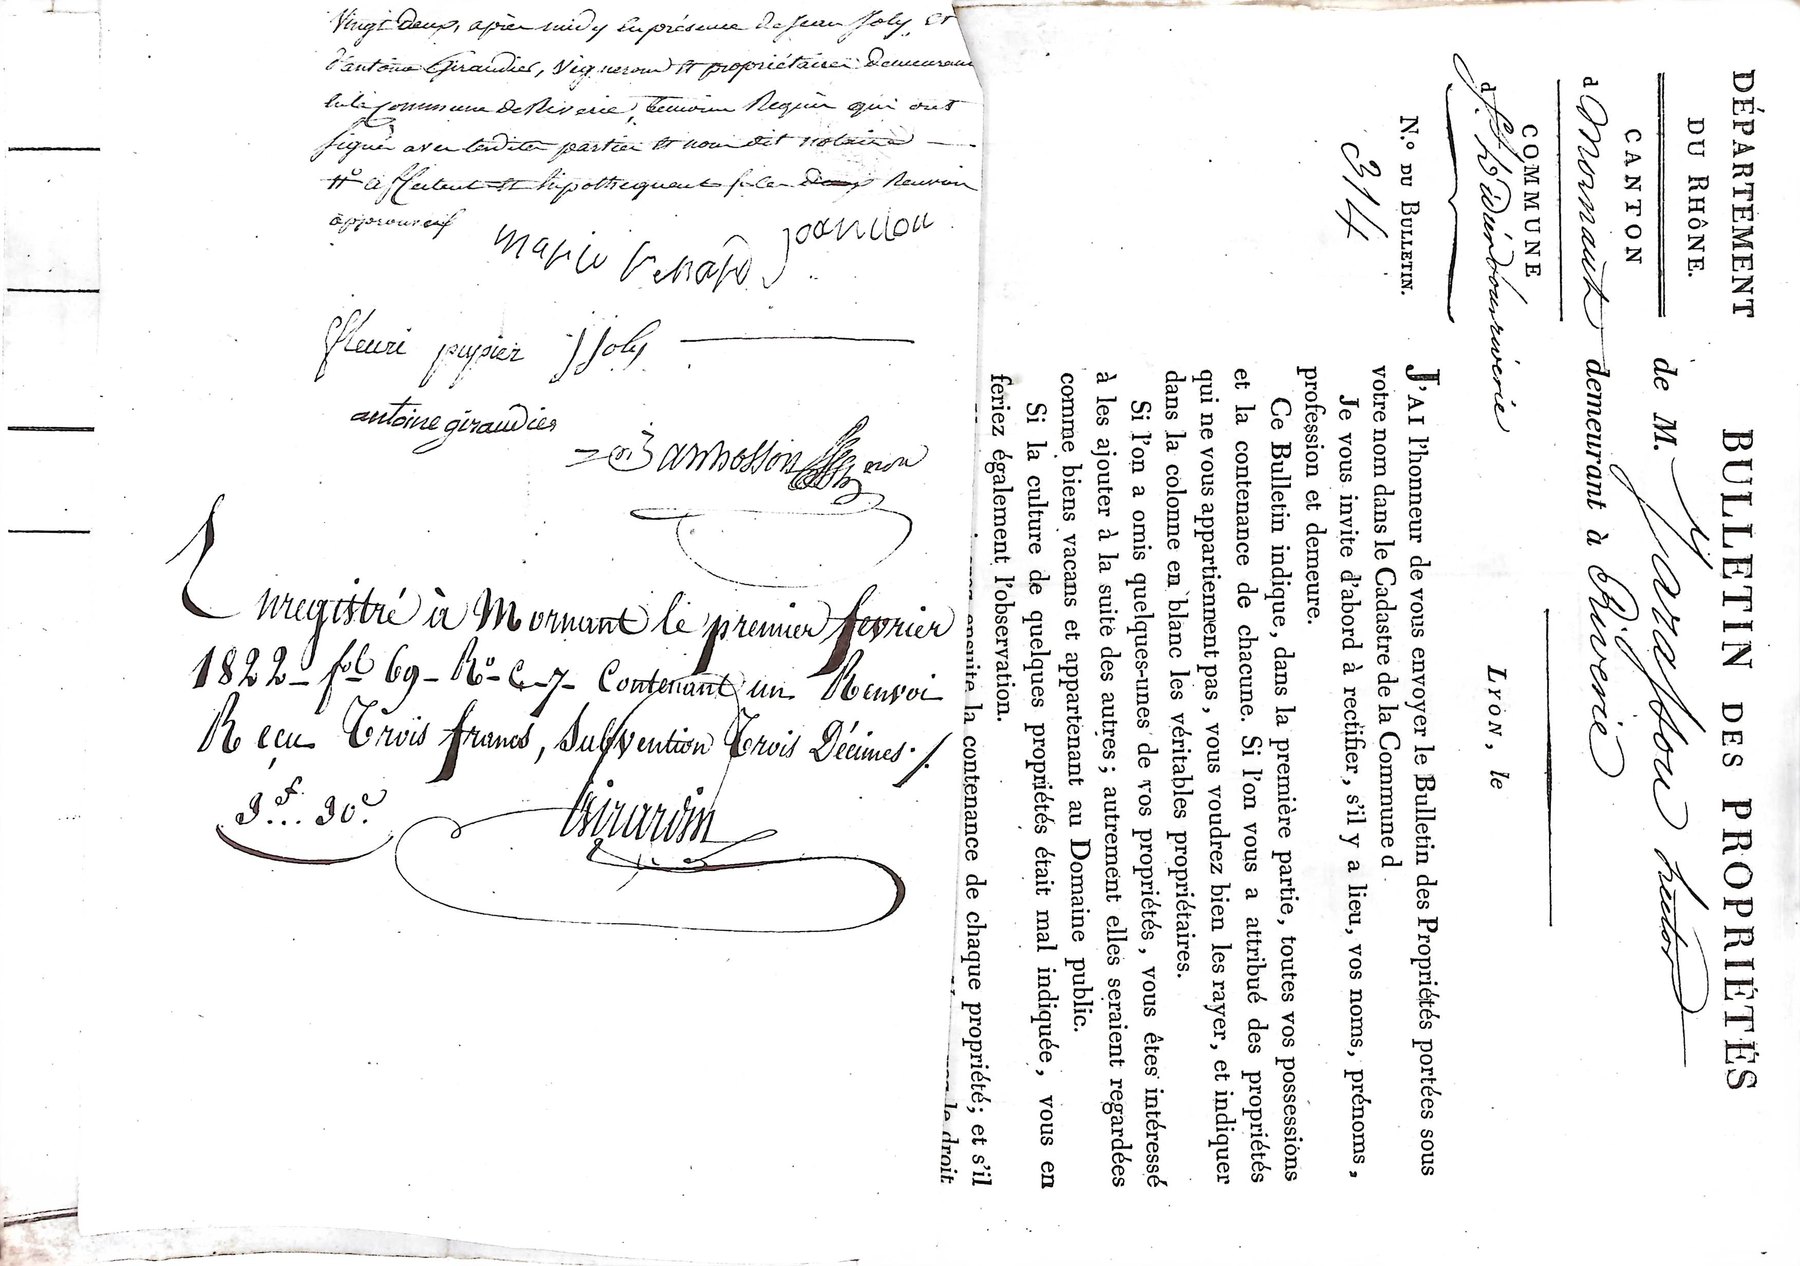 Vingt deux, après midy en présence de Jean Joly, et
d'antoine Giraudier, vigneron et propriétaires demeurant
en la commune de Riverie, temoins Requis qui ont
signés avec lesdites parties et nous dit notaire
approuvés
fleuri pupier J Joly
antoine giraudier
Enregistré à Mornant le premier fevrier
1822 - fol 69 - Ro C. 7 - Contenant un Renvoi
Reçu Trois francs, Subvention Trois Décimes ./.
3f... 30c
Girardin
DÉPARTEMENT
DU RHÔNE.
CANTON
d Mornant
COMMUNE
N.º DU BULLETIN.
314
BULLETIN DES PROPRIÉTÉS
de M.
demeurant à Riverie
LYON, le
J'AI l'honneur de vous envoyer le Bulletin des Propriétés portées sous
votre nom dans le Cadastre de la Commune d
Je vous invite d'abord à rectifier, s'il y a lieu, vos noms, prénoms,
profession et demeure.
Ce Bulletin indique, dans la première partie, toutes vos possessions
et la contenance de chacune. Si l'on vous a attribué des propriétés
qui ne vous appartiennent pas, vous voudrez bien les rayer, et indiquer
dans la colonne en blanc les véritables propriétaires.
Si l'on a omis quelques-unes de vos propriétés, vous êtes intéressé
à les ajouter à la suite des autres; autrement elles seraient regardées
comme biens vacans et appartenant au Domaine public.
Si la culture de quelques propriétés était mal indiquée, vous en
feriez également l'observation.
ensuite la contenance de chaque propriété; et s'il
le droit